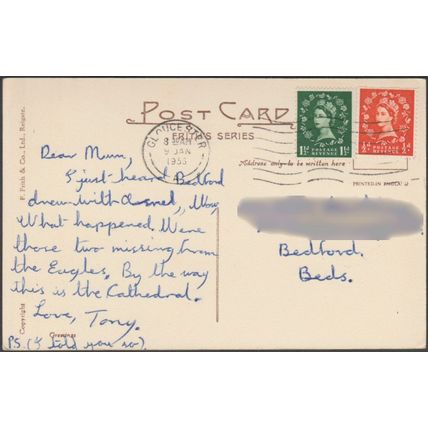 POST CARD
FRITH'S SERIES
GLOUCESTER
8 AM
9 JAN
1956
1½d POSTAGE REVENUE 1½d
½d POSTAGE REVENUE ½d
Address only to be written here
PRINTED IN ENGLAND
Copyright
F. Frith & Co., Ltd., Reigate.
Dear Mum,
I just heard Bedford
drew with Arsenal,
What happened. Were
those two missing from
the Eagles. By the way
this is the Cathedral.
Love, Tony.
Greetings
PS. (I told you so)
Bedford.
Beds.